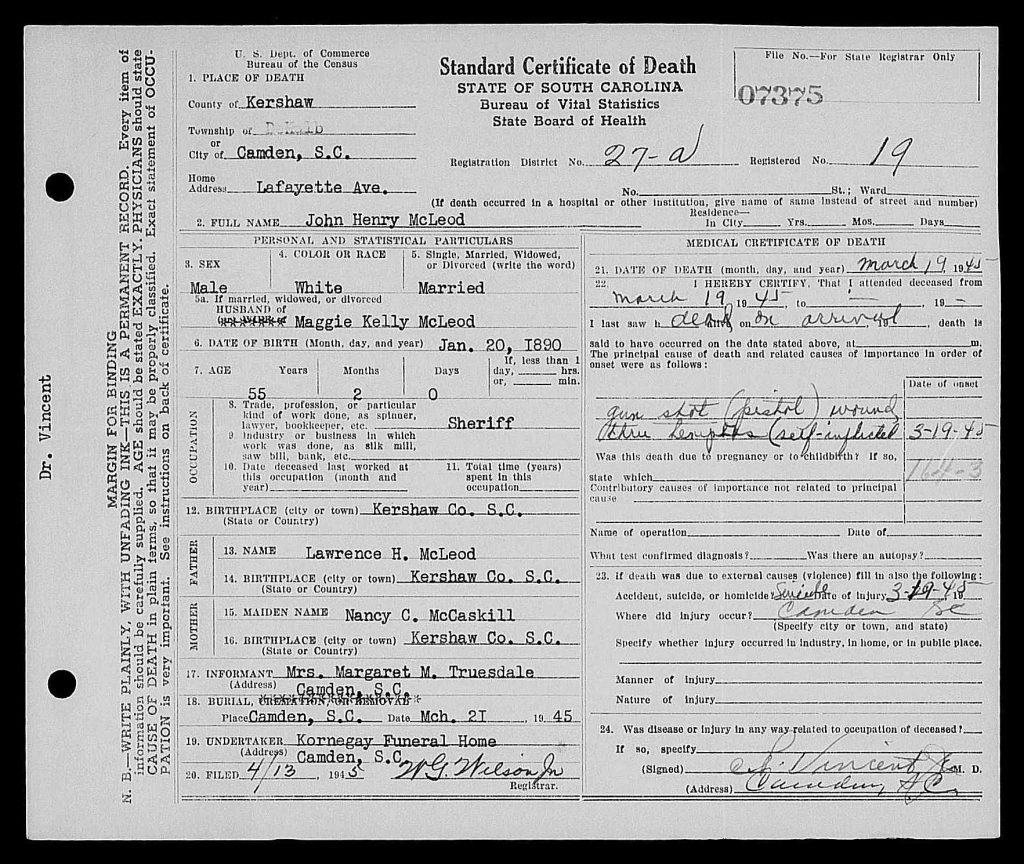 U. S. Dept. of Commerce
Bureau of the Census
Standard Certificate of Death
STATE OF SOUTH CAROLINA
Bureau of Vital Statistics
State Board of Health
File No.—For State Registrar Only
07375
1. PLACE OF DEATH
County of Kershaw
Township of
or
City of Camden, S.C.
Registration District No. 27-a Registered No. 19
Home
Address Lafayette Ave.
No. St.; Ward
(If death occurred in a hospital or other institution, give name of same instead of street and number)
2. FULL NAME John Henry McLeod
Residence—
In City Yrs. Mos. Days
PERSONAL AND STATISTICAL PARTICULARS
3. SEX
Male
4. COLOR OR RACE
White
5. Single, Married, Widowed,
or Divorced (write the word)
Married
5a. If married, widowed, or divorced
HUSBAND of
Maggie Kelly McLeod
6. DATE OF BIRTH (Month, day, and year) Jan. 20, I890
7. AGE Years Months Days
If, less than 1
day, hrs.
or, min.
55 2 0
OCCUPATION
8. Trade, profession, or particular
kind of work done, as spinner,
lawyer, bookkeeper, etc. Sheriff
9 Industry or business in which
work was done, as silk mill,
saw bill, bank, etc.
10. Date deceased last worked at
this occupation (month and
year)
11. Total time (years)
spent in this
occupation
12. BIRTHPLACE (city or town) Kershaw Co. S.C.
(State or Country)
FATHER
13. NAME Lawrence H. McLeod
14. BIRTHPLACE (city or town) Kershaw Co. S.C.
(State or Country)
MOTHER
15. MAIDEN NAME Nancy C. McCaskill
16. BIRTHPLACE (city or town) Kershaw Co. S.C.
(State or Country)
17. INFORMANT Mrs. Margaret M. Truesdale
(Address) Camden, S.C.
18. BURIAL, CREMATION, OR REMOVAL
Place Camden, S.C. Date Mch. 2I, 19 45
19. UNDERTAKER Kornegay Funeral Home
(Address) Camden, S.C.
20. FILED 4/13, 1945 W.G. Wilson Jr
Registrar.
MEDICAL CRETIFICATE OF DEATH
21. DATE OF DEATH (month, day, and year) March 19 1945
22. I HEREBY CERTIFY, That I attended deceased from
March 19 1945, to — , 19 —
I last saw h dead on arrival, death is
said to have occurred on the date stated above, at m.
The principal cause of death and related causes of importance in order of
onset were as follows:
Date of onset
gun shot (pistol) wound
thru (self-inflicted 3-19-45
Was this death due to pregnancy or to childbirth? If so,
state which 164-3
Contributory causes of importance not related to principal
cause
Name of operation Date of
What test confirmed diagnosis? Was there an autopsy?
23. If death was due to external causes (violence) fill in also the following:
Accident, suicide, or homicide? Suicide Date of injury 3-19-45 19
Where did injury occur? Camden SC
(Specify city or town, and state)
Specify whether injury occurred in industry, in home, or in public place.
Manner of injury
Nature of injury
24. Was disease or injury in any way related to occupation of deceased?
If so, specify
(Signed) Vincent Jr M. D.
(Address) Camden, S.C.
Dr. Vincent
MARGIN FOR BINDING
N. B.—WRITE PLAINLY, WITH UNFADING INK—THIS IS A PERMANENT RECORD. Every item of
information should be carefully supplied. AGE should be stated EXACTLY. PHYSICIANS should state
CAUSE OF DEATH in plain terms, so that it may be properly classified. Exact statement of OCCU-
PATION is very important. See instructions on back of certificate.